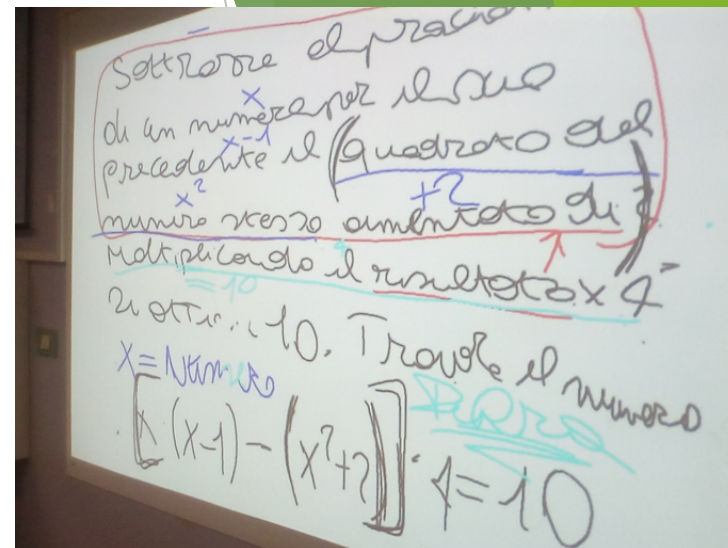 Sottrarre il prodo
di un numero per il suo
x
precedente il (quadrato del
x-1
x²
+2
numero stesso aumentato di 2)
Moltiplicando il risultato x 4
=10
Si ottiene 10. Trovare il numero
X = Numero
[x (x-1) - (x²+2)] · 4 = 10